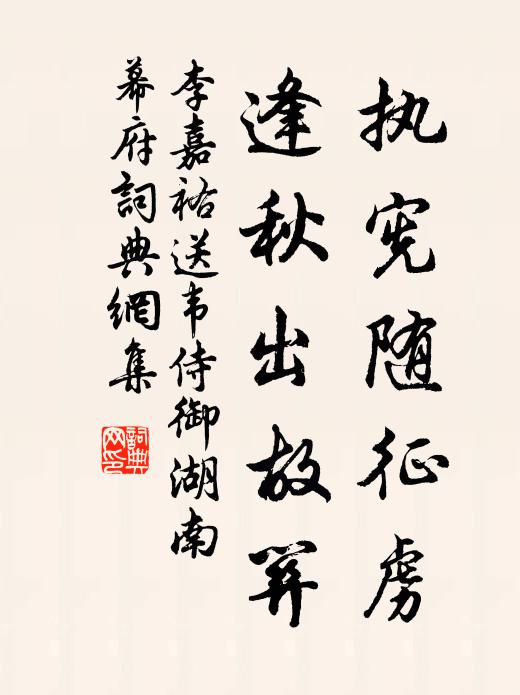 执宪随征虏
逢秋出故关
李嘉祐送韦侍御湖南
幕府詞典網集
詞典
网印